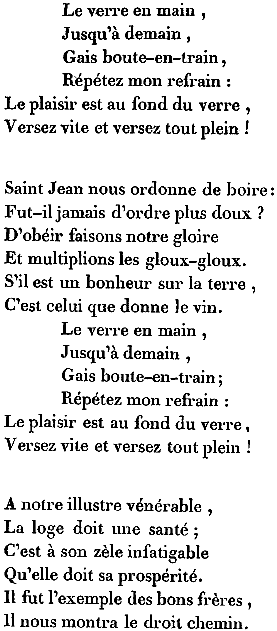 Le verre en main ,
Jusqu'à demain ,
Gais boute-en-train ,
Répétez mon refrain :
Le plaisir est au fond du verre ,
Versez vite et versez tout plein !
Saint Jean nous ordonne de boire :
Fut-il jamais d'ordre plus doux ?
D'obéir faisons notre gloire
Et multiplions les gloux-gloux.
S'il est un bonheur sur la terre ,
C'est celui que donne le vin.
Le verre en main ,
Jusqu'à demain ,
Gais boute-en-train ;
Répétez mon refrain :
Le plaisir est au fond du verre ,
Versez vite et versez tout plein !
A notre illustre vénérable ,
La loge doit une santé ;
C'est à son zèle infatigable
Qu'elle doit sa prospérité.
Il fut l'exemple des bons frères ,
Il nous montra le droit chemin.